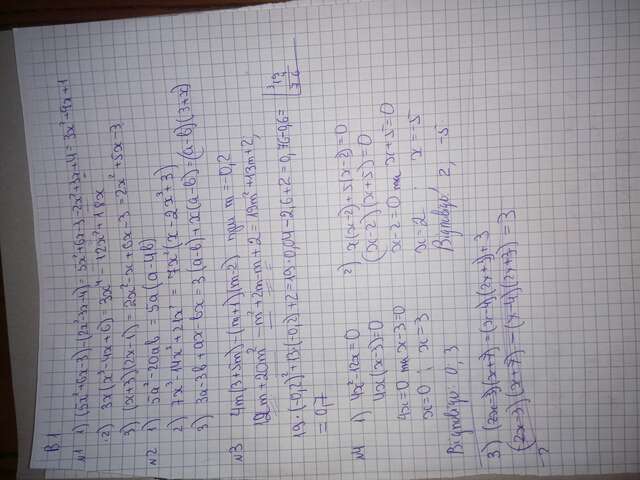 В.1
№1 1) (5x²+6x-3)-(2x²-3x-4)=5x²+6x-3-2x²+3x+4=3x²+9x+1
2) 3x(x³-4x+6)=3x⁴-12x²+18x
3) (x+3)(2x-1)=2x²-x+6x-3=2x²+5x-3
№2 1) 5a²-20ab=5a(a-4b)
2) 7x³-14x⁵+21x²=7x²(x-2x³+3)
3) 3a-3b+ax-bx=3(a-b)+x(a-b)=(a-b)(3+x)
№3 4m(3+5m)-(m+1)(m-2) при m=-0,2
12m+20m²-m²+2m-m+2=19m²+13m+2;
19·(-0,2)²+13(-0,2)+2=19·0,04-2,6+2=0,76-0,6=
=0,7
№4 1) 4x²-12x=0
4x(x-3)=0
4x=0 та x-3=0
x=0; x=3
Відповідь: 0; 3
2) x(x-2)+5(x-2)=0
(x-2)(x+5)=0
x-2=0 та x+5=0
x=2; x=-5
Відповідь: 2, -5
3) (2x-3)(x+7)=(x-4)(2x+3)+3
(2x-3)(x+7)-(x-4)(2x+3)=3